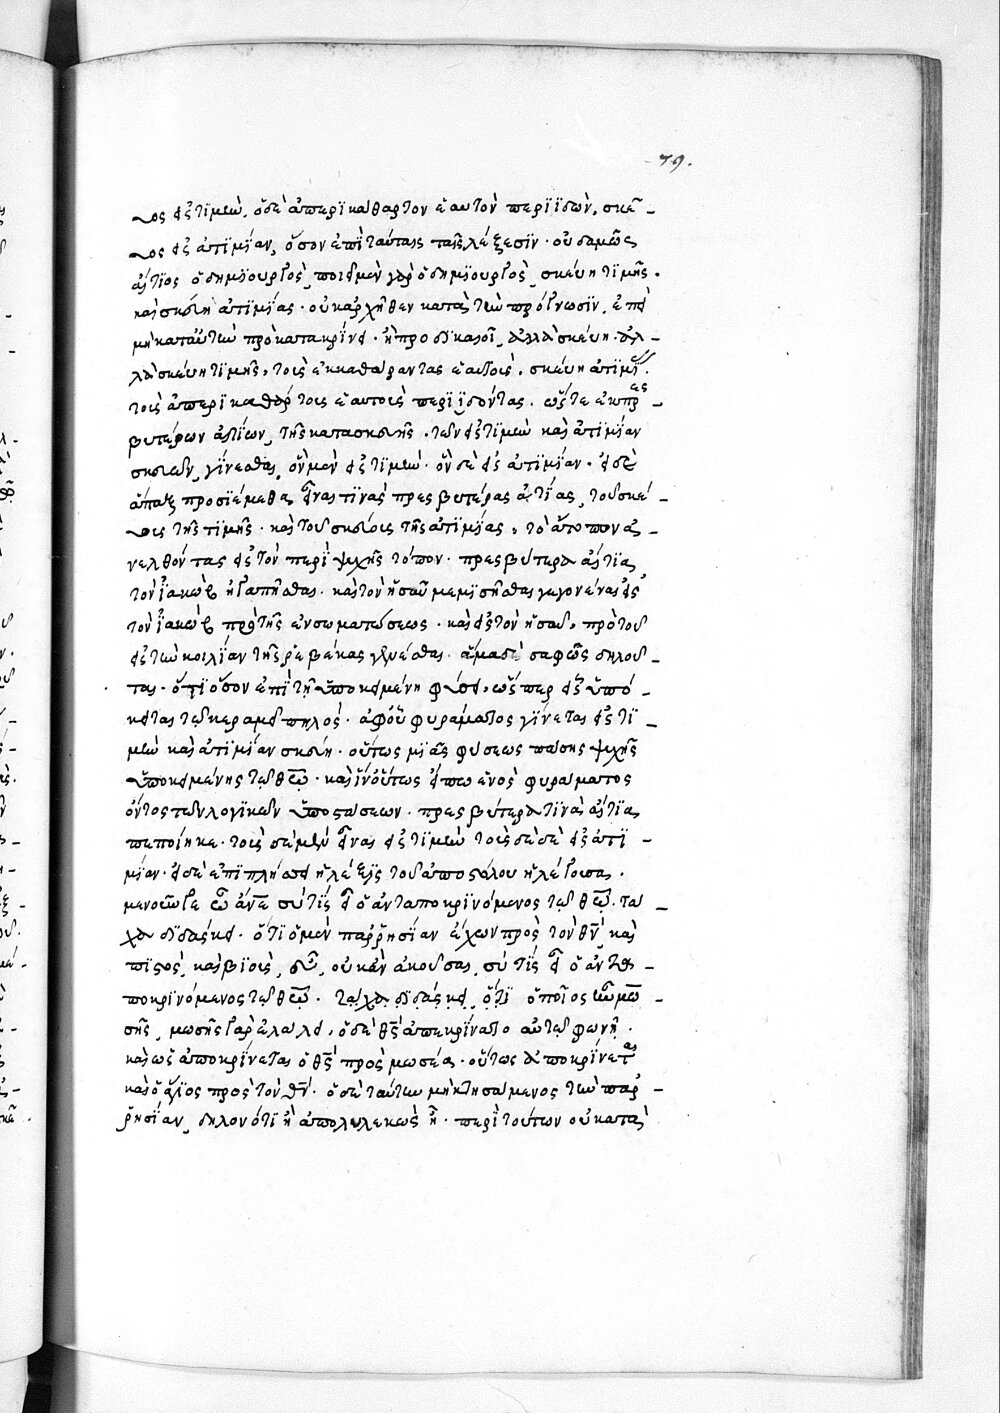 79.
υος εἰς τιμὴν. ὁ δὲ ἀπερικάθαρτον ἑαυτὸν περιϊδὼν, σκεῦ-
υος εἰς ἀτιμίαν, ὅσον ἐπὶ ταύταις ταῖς λέξεσιν· οὐδαμῶς
αἴτιος ὁ δημιουργός, ποιεῖ μὲν γὰρ ὁ δημιουργὸς, σκεύη τιμῆς.
καὶ σκεύη ἀτιμίας· οὐκ ἀρχῆθεν κατὰ τὴν πρόγνωσιν, ἐπεὶ
μὴ κατ' αὐτὴν προκατακρίνει· ἢ προδικαιοῖ, ἀλλὰ σκεύη· ἀλ-
λὰ σκεύη τιμῆς, τοὺς ἐκκαθάραντας ἑαυτούς, σκεύη ἀτιμί.
τοὺς ἀπερικαθάρτους ἑαυτοὺς περιϊδόντας. ὥστε ἐκ πρεσ-
βυτέρων αἰτίων, τῆς κατασκευῆς· τῶν εἰς τιμὴν καὶ ἀτιμίαν
σκευῶν, γίνεσθαι, ὃν μὲν εἰς τιμὴν· ὃν δὲ εἰς ἀτιμίαν· εἰ δὲ
ἅπαξ προσιέμεθα, εἶναι τινὰς πρεσβυτέρας αἰτίας, τοῦ σκεύ-
ους τῆς τιμῆς· καὶ τοῦ σκεύους τῆς ἀτιμίας, τὸ ἄτοπον ἀ-
νελθόντας εἰς τὸν περὶ ψυχῆς τόπον· πρεσβύτερα αἴτια
τὸν ἰακὼβ ἠγαπῆσθαι· καὶ τὸν ἡσαῦ μεμισῆσθαι γεγονέναι εἰς
τὸν ἰακὼβ πρὸ τῆς ἐνσωματώσεως· καὶ εἰς τὸν ἡσαῦ, πρὸ τοῦ
εἰς τὴν κοιλίαν τῆς ῥεβέκας γενέσθαι· ἅμα δὲ σαφῶς δηλοῦ-
ται· ὅτι ὅσον ἐπὶ τῇ ὑποκειμένῃ φύσει, ὥσπερ εἷς ὑπό-
κειται τῷ κεραμεῖ πηλός· ἀφ' οὗ φυράματος γίνεται εἰς τι-
μὴν καὶ ἀτιμίαν σκεύη· οὕτως μιᾶς φύσεως πάσης ψυχῆς
ὑποκειμένης τῷ θεῷ· καὶ ἵν' οὕτως εἴπω ἑνὸς φυράματος
ὄντος τῶν λογικῶν ὑποστάσεων· πρεσβύτερά τινα αἴτια
πεποίηκε· τοὺς δὲ μὲν εἶναι εἰς τιμὴν τοὺς δὲ εἰς ἀτι-
μίαν· εἰ δὲ ἐπιπλήσσει ἡ λέξις τοῦ ἀποστόλου ἡ λέγουσα.
μενοῦνγε ὦ ἄνε σὺ τίς εἶ ὁ ἀνταποκρινόμενος τῷ θεῷ· τά-
χα διδάσκει· ὅτι ὁ μὲν παρρησίαν ἔχων πρὸς τὸν θν, καὶ
πιστὸς, καὶ βίους, οὐκ ἂν ἀκούσαι, σὺ τίς εἶ ὁ ἀντα-
ποκρινόμενος τῷ θεῷ· τάχα διδάσκει, ὅτι ὁποῖος ἦν μω-
σῆς, μωσῆς γὰρ ἐλάλει, ὁ δὲ θς ἀπεκρίνατο αὐτῷ φωνῇ.
καὶ ὡς ἀποκρίνεται ὁ θς πρὸς μωσέα· οὕτως ἀποκρίνεται
καὶ ὁ ἅγιος πρὸς τὸν θν· ὁ δὲ ταύτην μὴ κτησάμενος τὴν παρ-
ρησίαν, δηλονότι ἢ ἀπολωλεκὼς ἢ· περὶ τούτων οὐ κατὰ